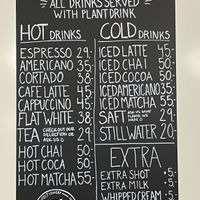 ALL DRINKS SERVED
WITH PLANT DRINK
HOT DRINKS
ESPRESSO 29.-
AMERICANO 35.-
CORTADO 38.-
CAFE LATTE 45.-
CAPPUCCINO 45.-
FLAT WHITE 38.-
TEA CHECK OUT OUR SELECTION OR ASK US 29.-
HOT CHAI 50.-
HOT COCA 50.-
HOT MATCHA 55.-
COLD DRINKS
ICED LATTE 45.-
ICED CHAI 50.-
ICED COCOA 50.-
ICED AMERICANO 35.-
ICED MATCHA 55.-
SAFT ASK US WHAT WE HAVE 29.-
STILL WATER 20.-
EXTRA
EXTRA SHOT +5.-
EXTRA MILK +5.-
WHIPPED CREAM +5.-